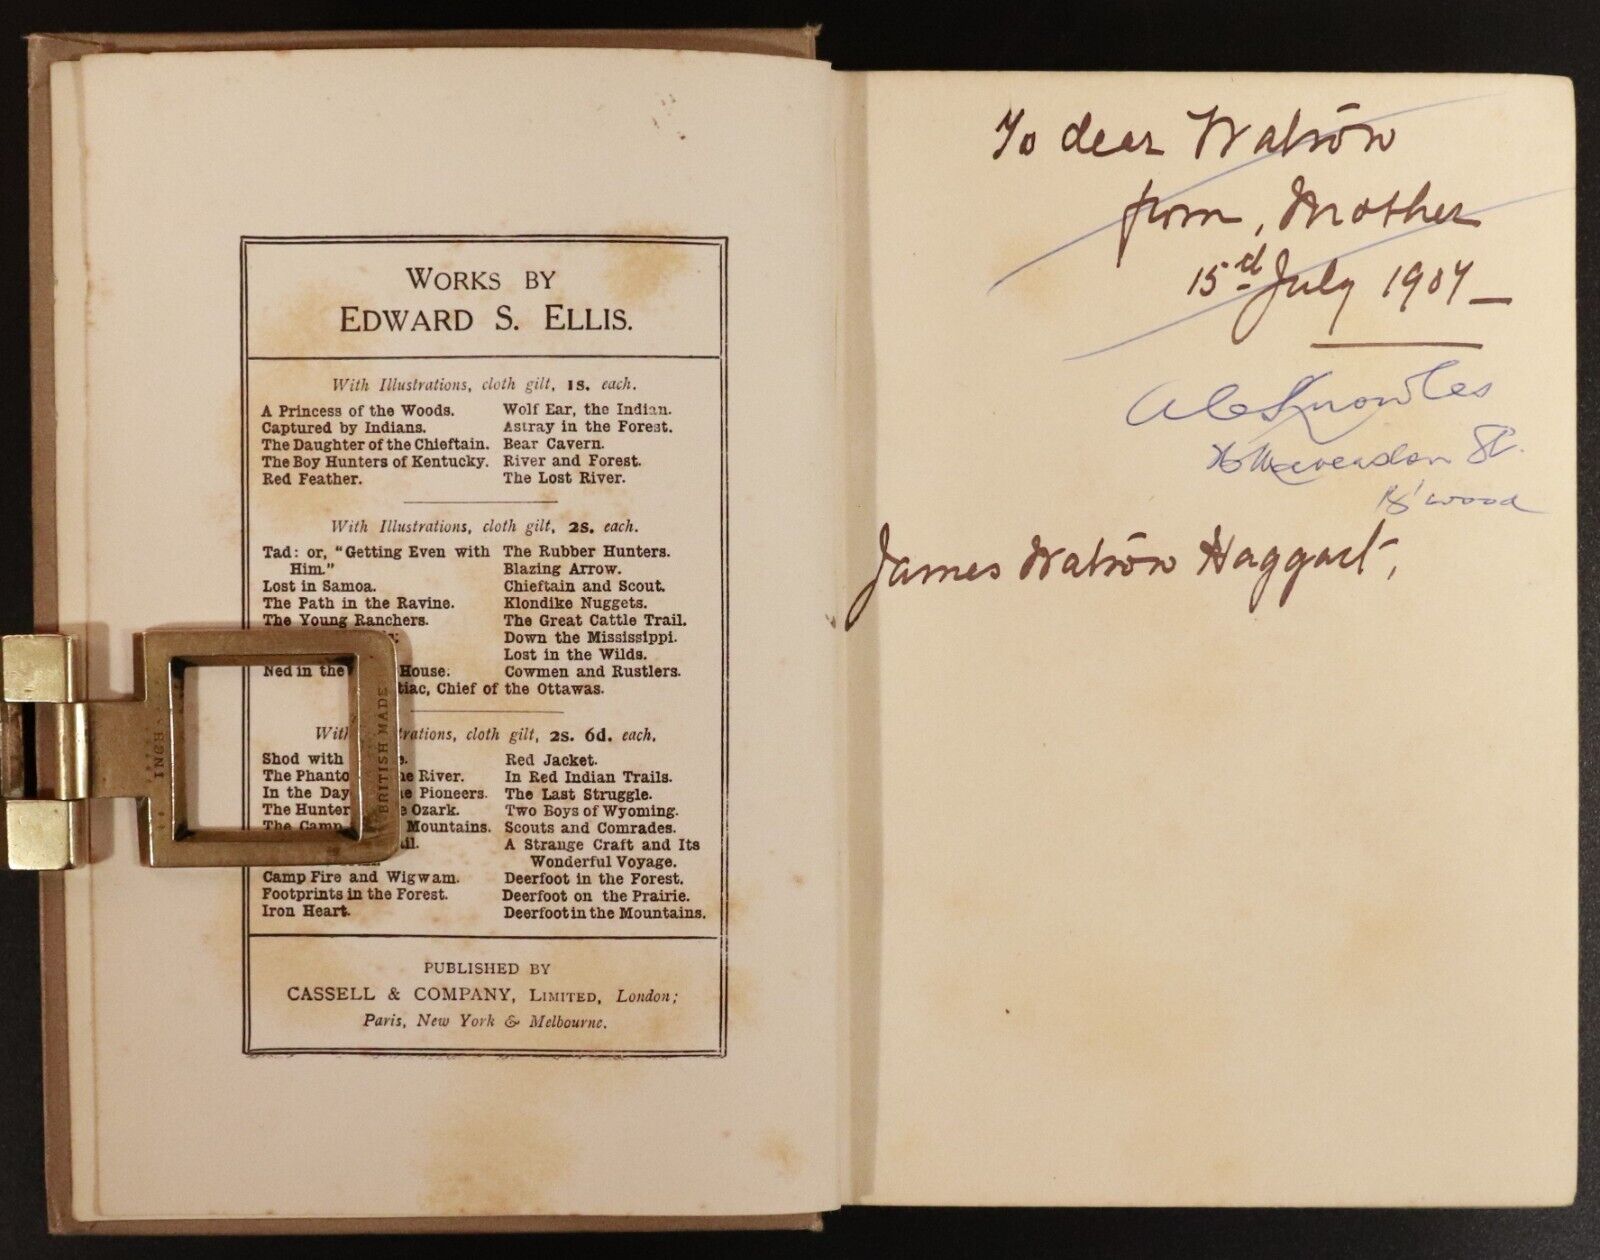 WORKS BY
EDWARD S. ELLIS.
With Illustrations, cloth gilt, 1s. each.
A Princess of the Woods.
Captured by Indians.
The Daughter of the Chieftain.
The Boy Hunters of Kentucky.
Red Feather.
Wolf Ear, the Indian.
Astray in the Forest.
Bear Cavern.
River and Forest.
The Lost River.
With Illustrations, cloth gilt, 2s. each.
Tad: or, "Getting Even with
Him."
Lost in Samoa.
The Path in the Ravine.
The Young Ranchers.
Ned in the House.
The Rubber Hunters.
Blazing Arrow.
Chieftain and Scout.
Klondike Nuggets.
The Great Cattle Trail.
Down the Mississippi.
Lost in the Wilds.
Cowmen and Rustlers.
Chief of the Ottawas.
cloth gilt, 2s. 6d. each.
Shod with
The River.
In the Pioneers.
The Ozark.
The Camp Mountains.
Camp Fire and Wigwam.
Footprints in the Forest.
Iron Heart.
Red Jacket.
In Red Indian Trails.
The Last Struggle.
Two Boys of Wyoming.
Scouts and Comrades.
A Strange Craft and Its
Wonderful Voyage.
Deerfoot in the Forest.
Deerfoot on the Prairie.
Deerfoot in the Mountains.
PUBLISHED BY
CASSELL & COMPANY, LIMITED, London;
Paris, New York & Melbourne.
INCH
BRITISH MADE
To dear Watson
from, Mother
15d July 1907
Knowles
St.
B'wood
James Watson Haggart,